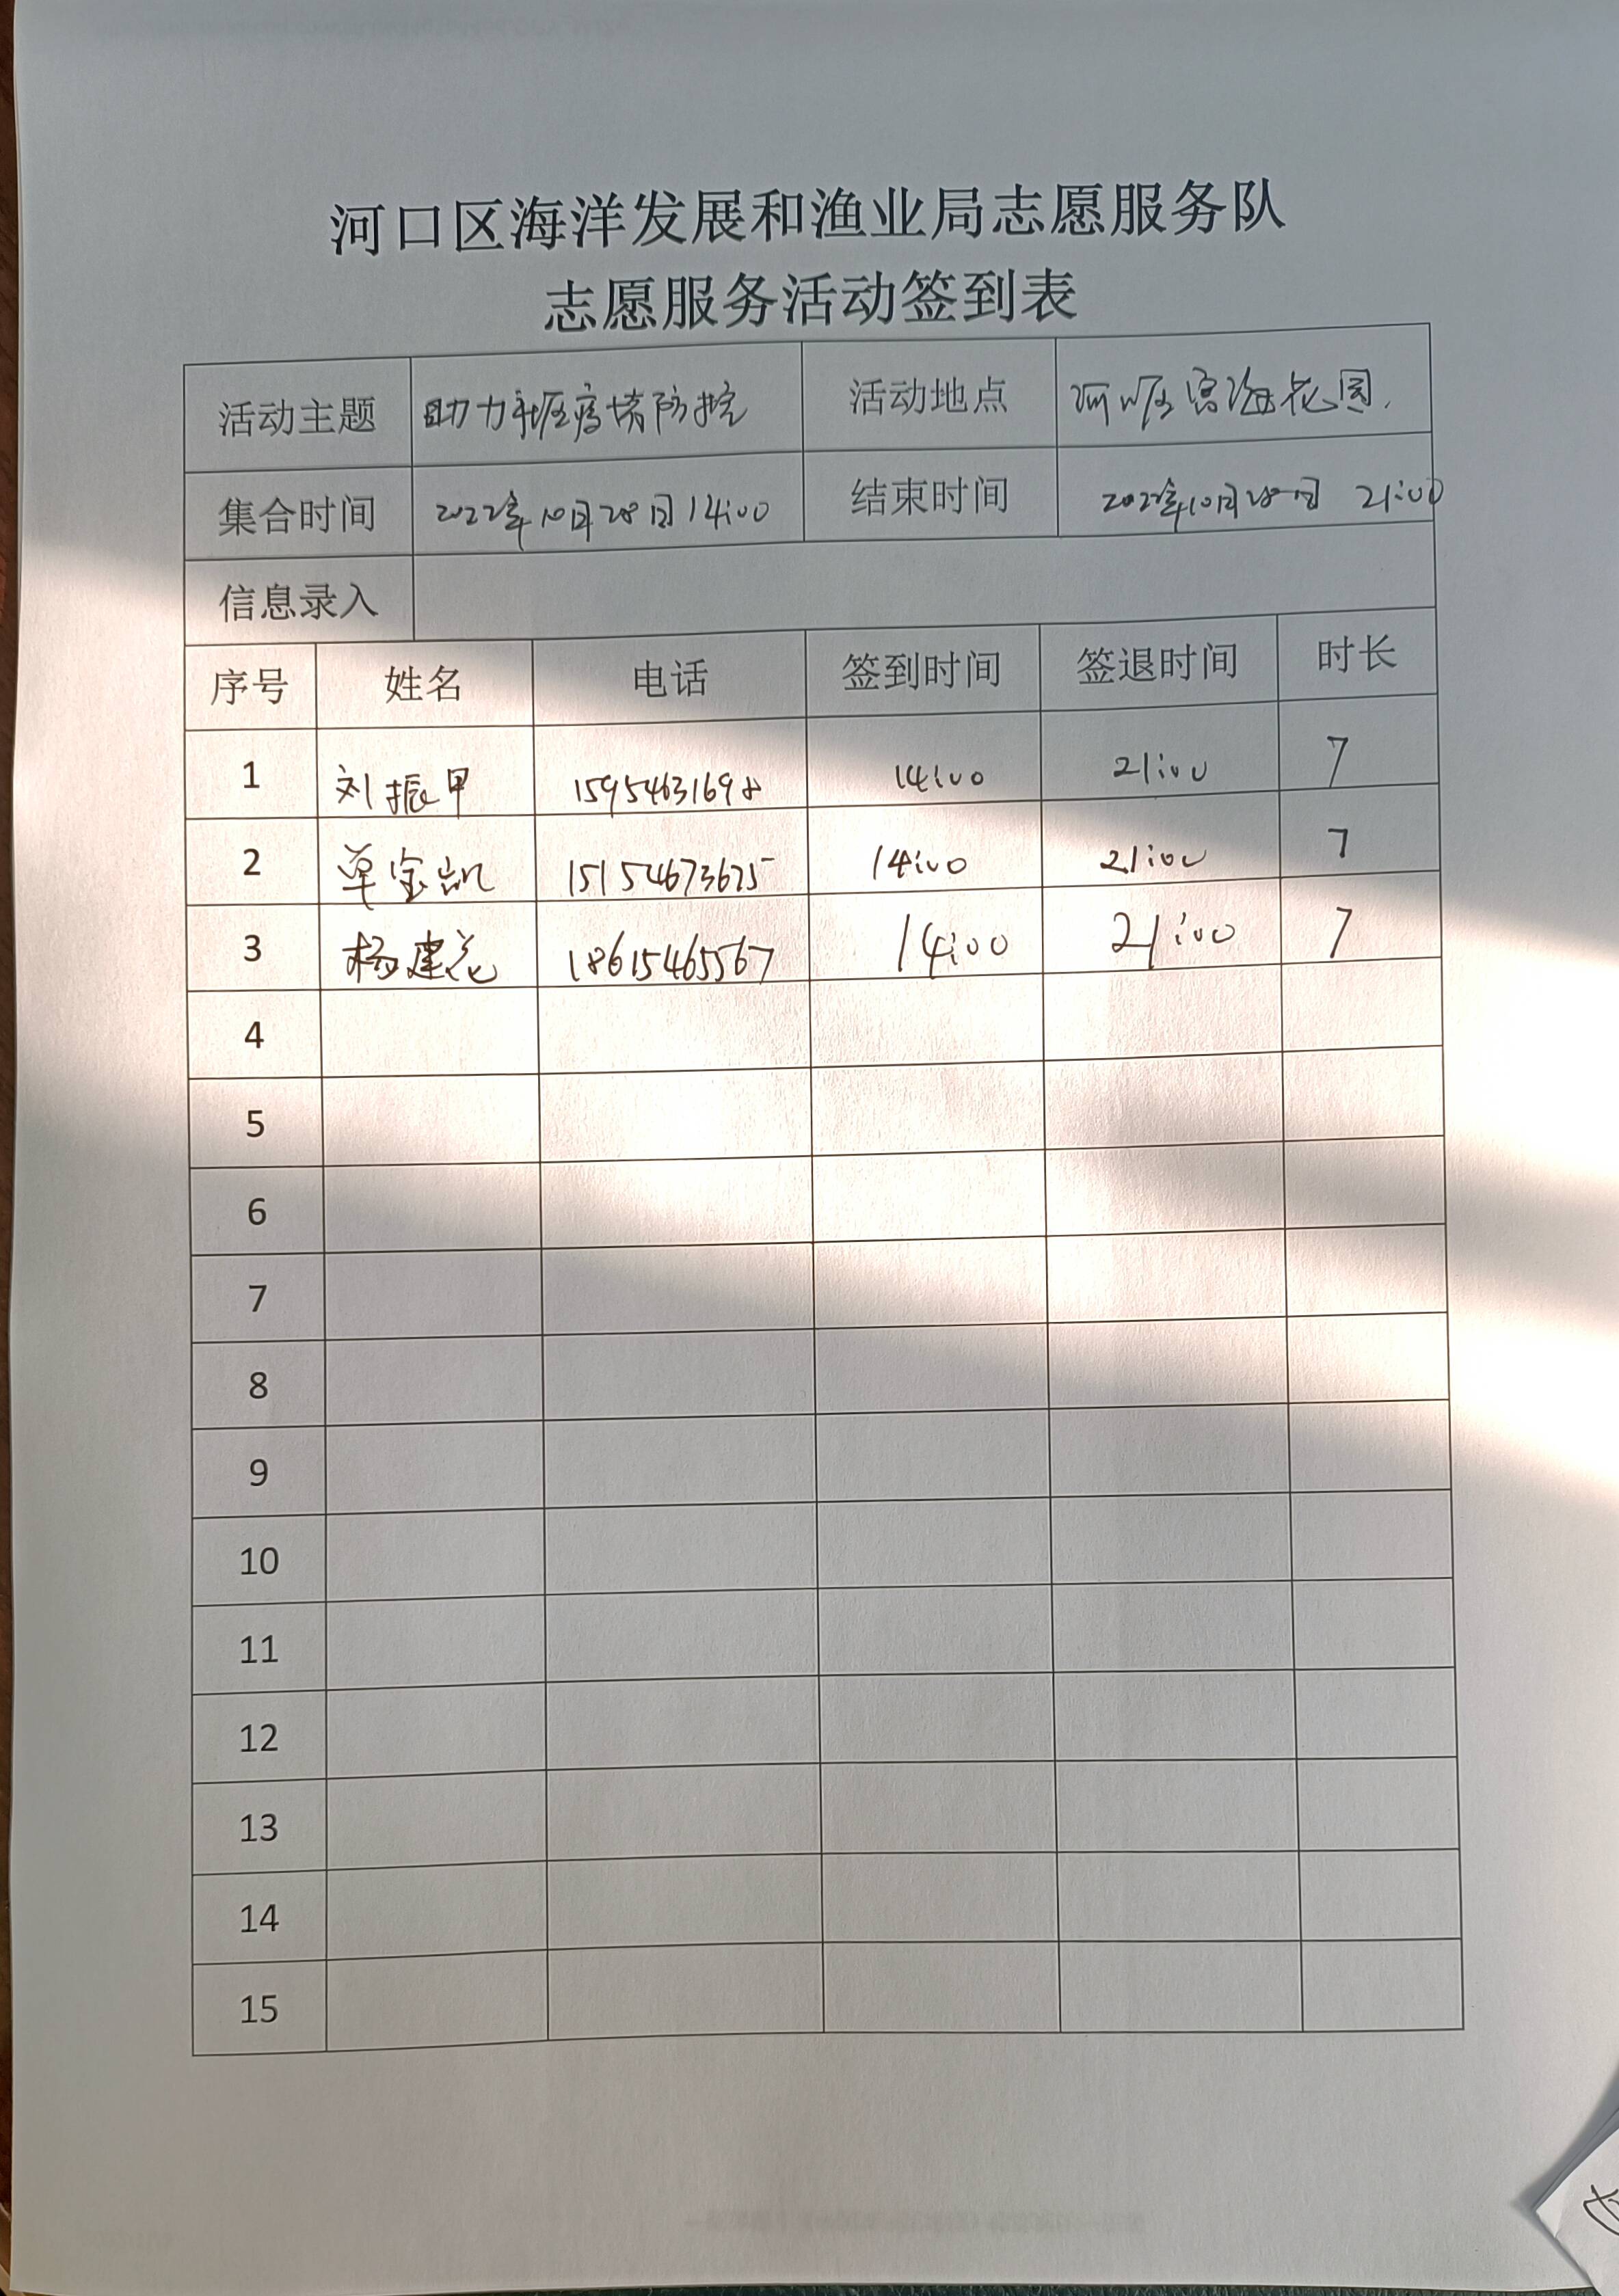 河口区海洋发展和渔业局志愿服务队
志愿服务活动签到表
活动主题 助力社区疫情防控 活动地点 河口区富海花园
集合时间 2022年10月28日14:00 结束时间 2022年10月28日 21:00
信息录入
序号 姓名 电话 签到时间 签退时间 时长
1 刘振甲 15954631698 14:00 21:00 7
2 单宝凯 15154673625 14:00 21:00 7
3 杨建花 18615465567 14:00 21:00 7
4
5
6
7
8
9
10
11
12
13
14
15